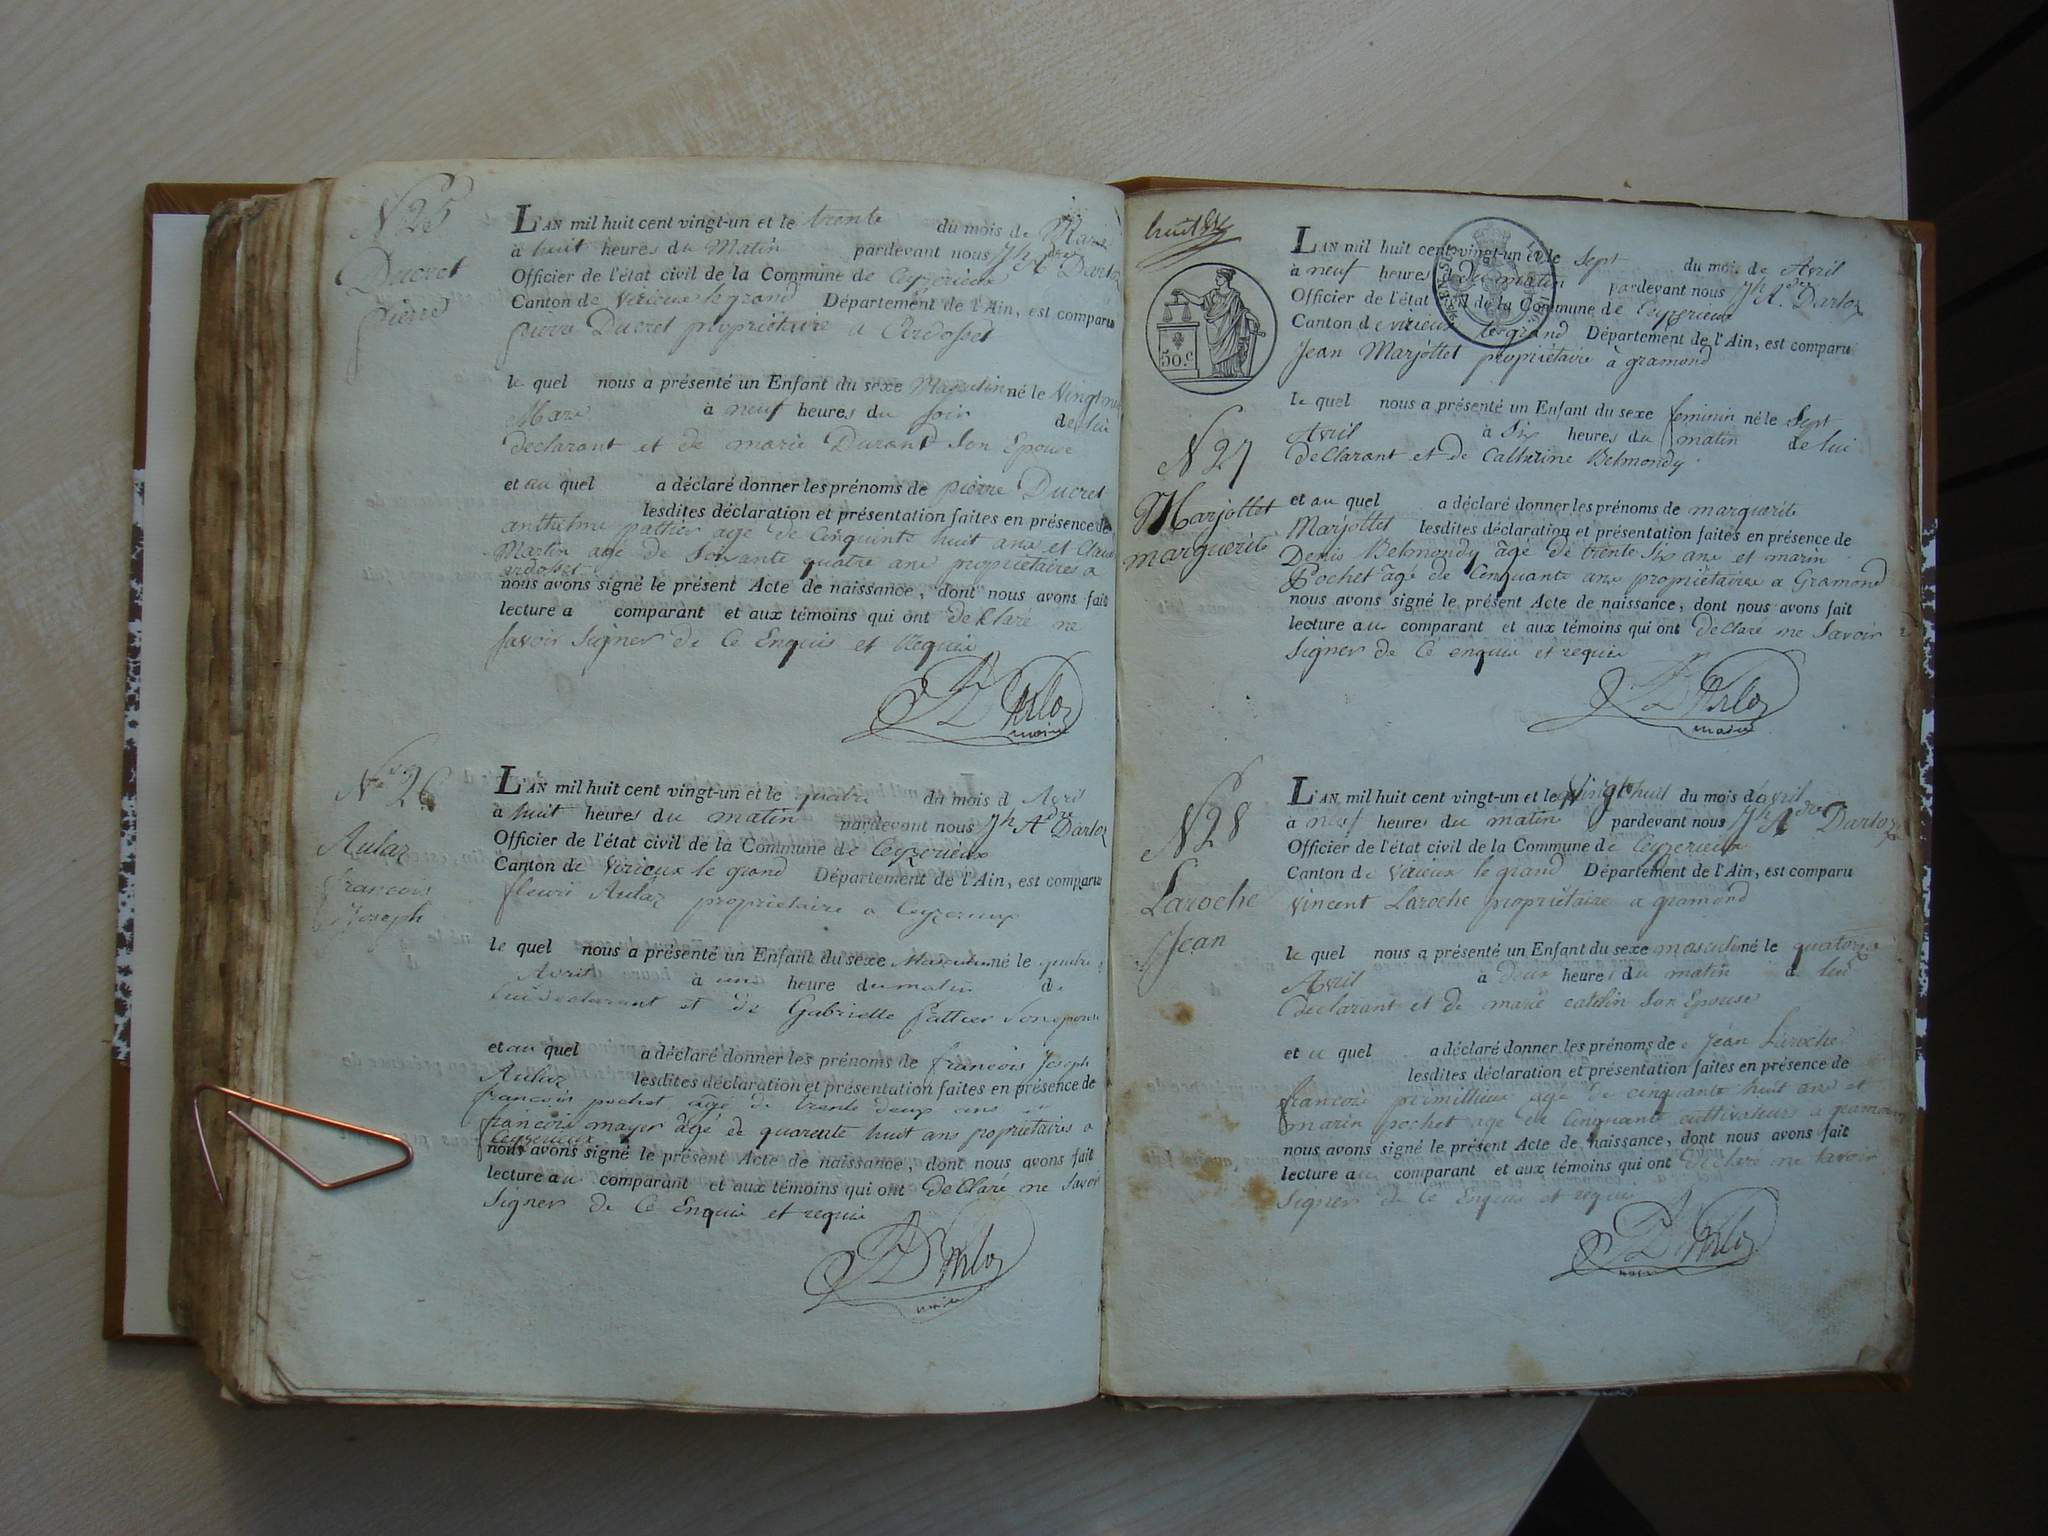 N 25
Ducret
pierre
L'AN mil huit cent vingt-un et le trente du mois de Mars
à huit heures du Matin pardevant nous Jh Adre Darloz
Officier de l'état civil de la Commune de Ceyzerieux
Canton de Virieux le grand Département de l'Ain, est comparu
pierre Ducret propriétaire a Ardosset
le quel nous a présenté un Enfant du sexe Masculin né le Vingt neuf
Mars à neuf heures du soir de lui
declarant et de marie Durand son Epouse
et au quel a déclaré donner les prénoms de pierre Ducret
lesdites déclaration et présentation faites en présence de
anthelme pattier agé de Cinquante huit ans et Claude
Martin agé de Soixante quatre ans propriétaires a
ardosset
nous avons signé le présent Acte de naissance, dont nous avons fait
lecture a comparant et aux témoins qui ont declaré ne
savoir signer de Ce Enquis et Requis
Darloz
maire
No 26
Aulaz
francois
Joseph
L'AN mil huit cent vingt-un et le quatre du mois d Avril
à huit heures du matin pardevant nous Jh Adre Darloz
Officier de l'état civil de la Commune de Ceyzerieux
Canton de Virieux le grand Département de l'Ain, est comparu
fleuri Aulaz propriétaire a Ceyzerieux
le quel nous a présenté un Enfant du sexe Masculin né le quatre
Avril à une heure du matin de
lui declarant et de Gabrielle pattier son epouse
et au quel a déclaré donner les prénoms de francois Joseph
Aulaz lesdites déclaration et présentation faites en présence de
francois pochet agé de trente deux ans et
francois mayer agé de quarente huit ans propriétaires a
Ceyzerieux
nous avons signé le présent Acte de naissance, dont nous avons fait
lecture au comparant et aux témoins qui ont declaré ne savoir
signer de Ce Enquis et requis
Darloz
maire
huit
50.c
N 27
Marjollet
marguerite
L'AN mil huit cent vingt-un et le sept du mois de Avril
à neuf heures du matin pardevant nous Jh Adre Darloz
Officier de l'état civil de la Commune de Ceyzerieux
Canton de virieux le grand Département de l'Ain, est comparu
Jean Marjollet propriétaire à gramond
le quel nous a présenté un Enfant du sexe feminin né le Sept
Avril à Six heures du matin de lui
declarant et de Catherine Belmondy
et au quel a déclaré donner les prénoms de marguerite
Marjollet lesdites déclaration et présentation faites en présence de
Denis Belmondy âgé de trente Six ans et marin
Pochet agé de Cenquante ans propriétaires a Gramond
nous avons signé le présent Acte de naissance, dont nous avons fait
lecture au comparant et aux témoins qui ont declaré ne savoir
signer de Ce enquis et requis
Darloz
maire
No 28
Laroche
Jean
L'AN mil huit cent vingt-un et le Vingt huit du mois d avril
à neuf heures du matin pardevant nous Jh Adre Darloz
Officier de l'état civil de la Commune de Ceyzerieux
Canton de Virieux le grand Département de l'Ain, est comparu
Vincent Laroche propriétaire a gramond
le quel nous a présenté un Enfant du sexe masculin né le quatorze
Avril à deux heures du matin d lui
declarant et de marie catelin son Epouse
et u quel a déclaré donner les prénoms de Jean Laroche
lesdites déclaration et présentation faites en présence de
francois permillieux agé de cinquante huit ans et
marin pochet age de Cinquante cultivateurs a gramond
nous avons signé le présent Acte de naissance, dont nous avons fait
lecture au comparant et aux témoins qui ont declaré ne savoir
signer de Ce Enquis et requis
Darloz
maire